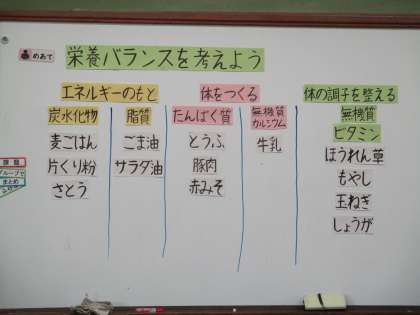 めあて
栄養バランスを考えよう
エネルギーのもと
体をつくる
体の調子を整える
炭水化物
脂質
たんぱく質
無機質
カルシウム
無機質
ビタミン
麦ごはん
片くり粉
さとう
ごま油
サラダ油
とうふ
豚肉
赤みそ
牛乳
ほうれん草
もやし
玉ねぎ
しょうが
課題
まとめ